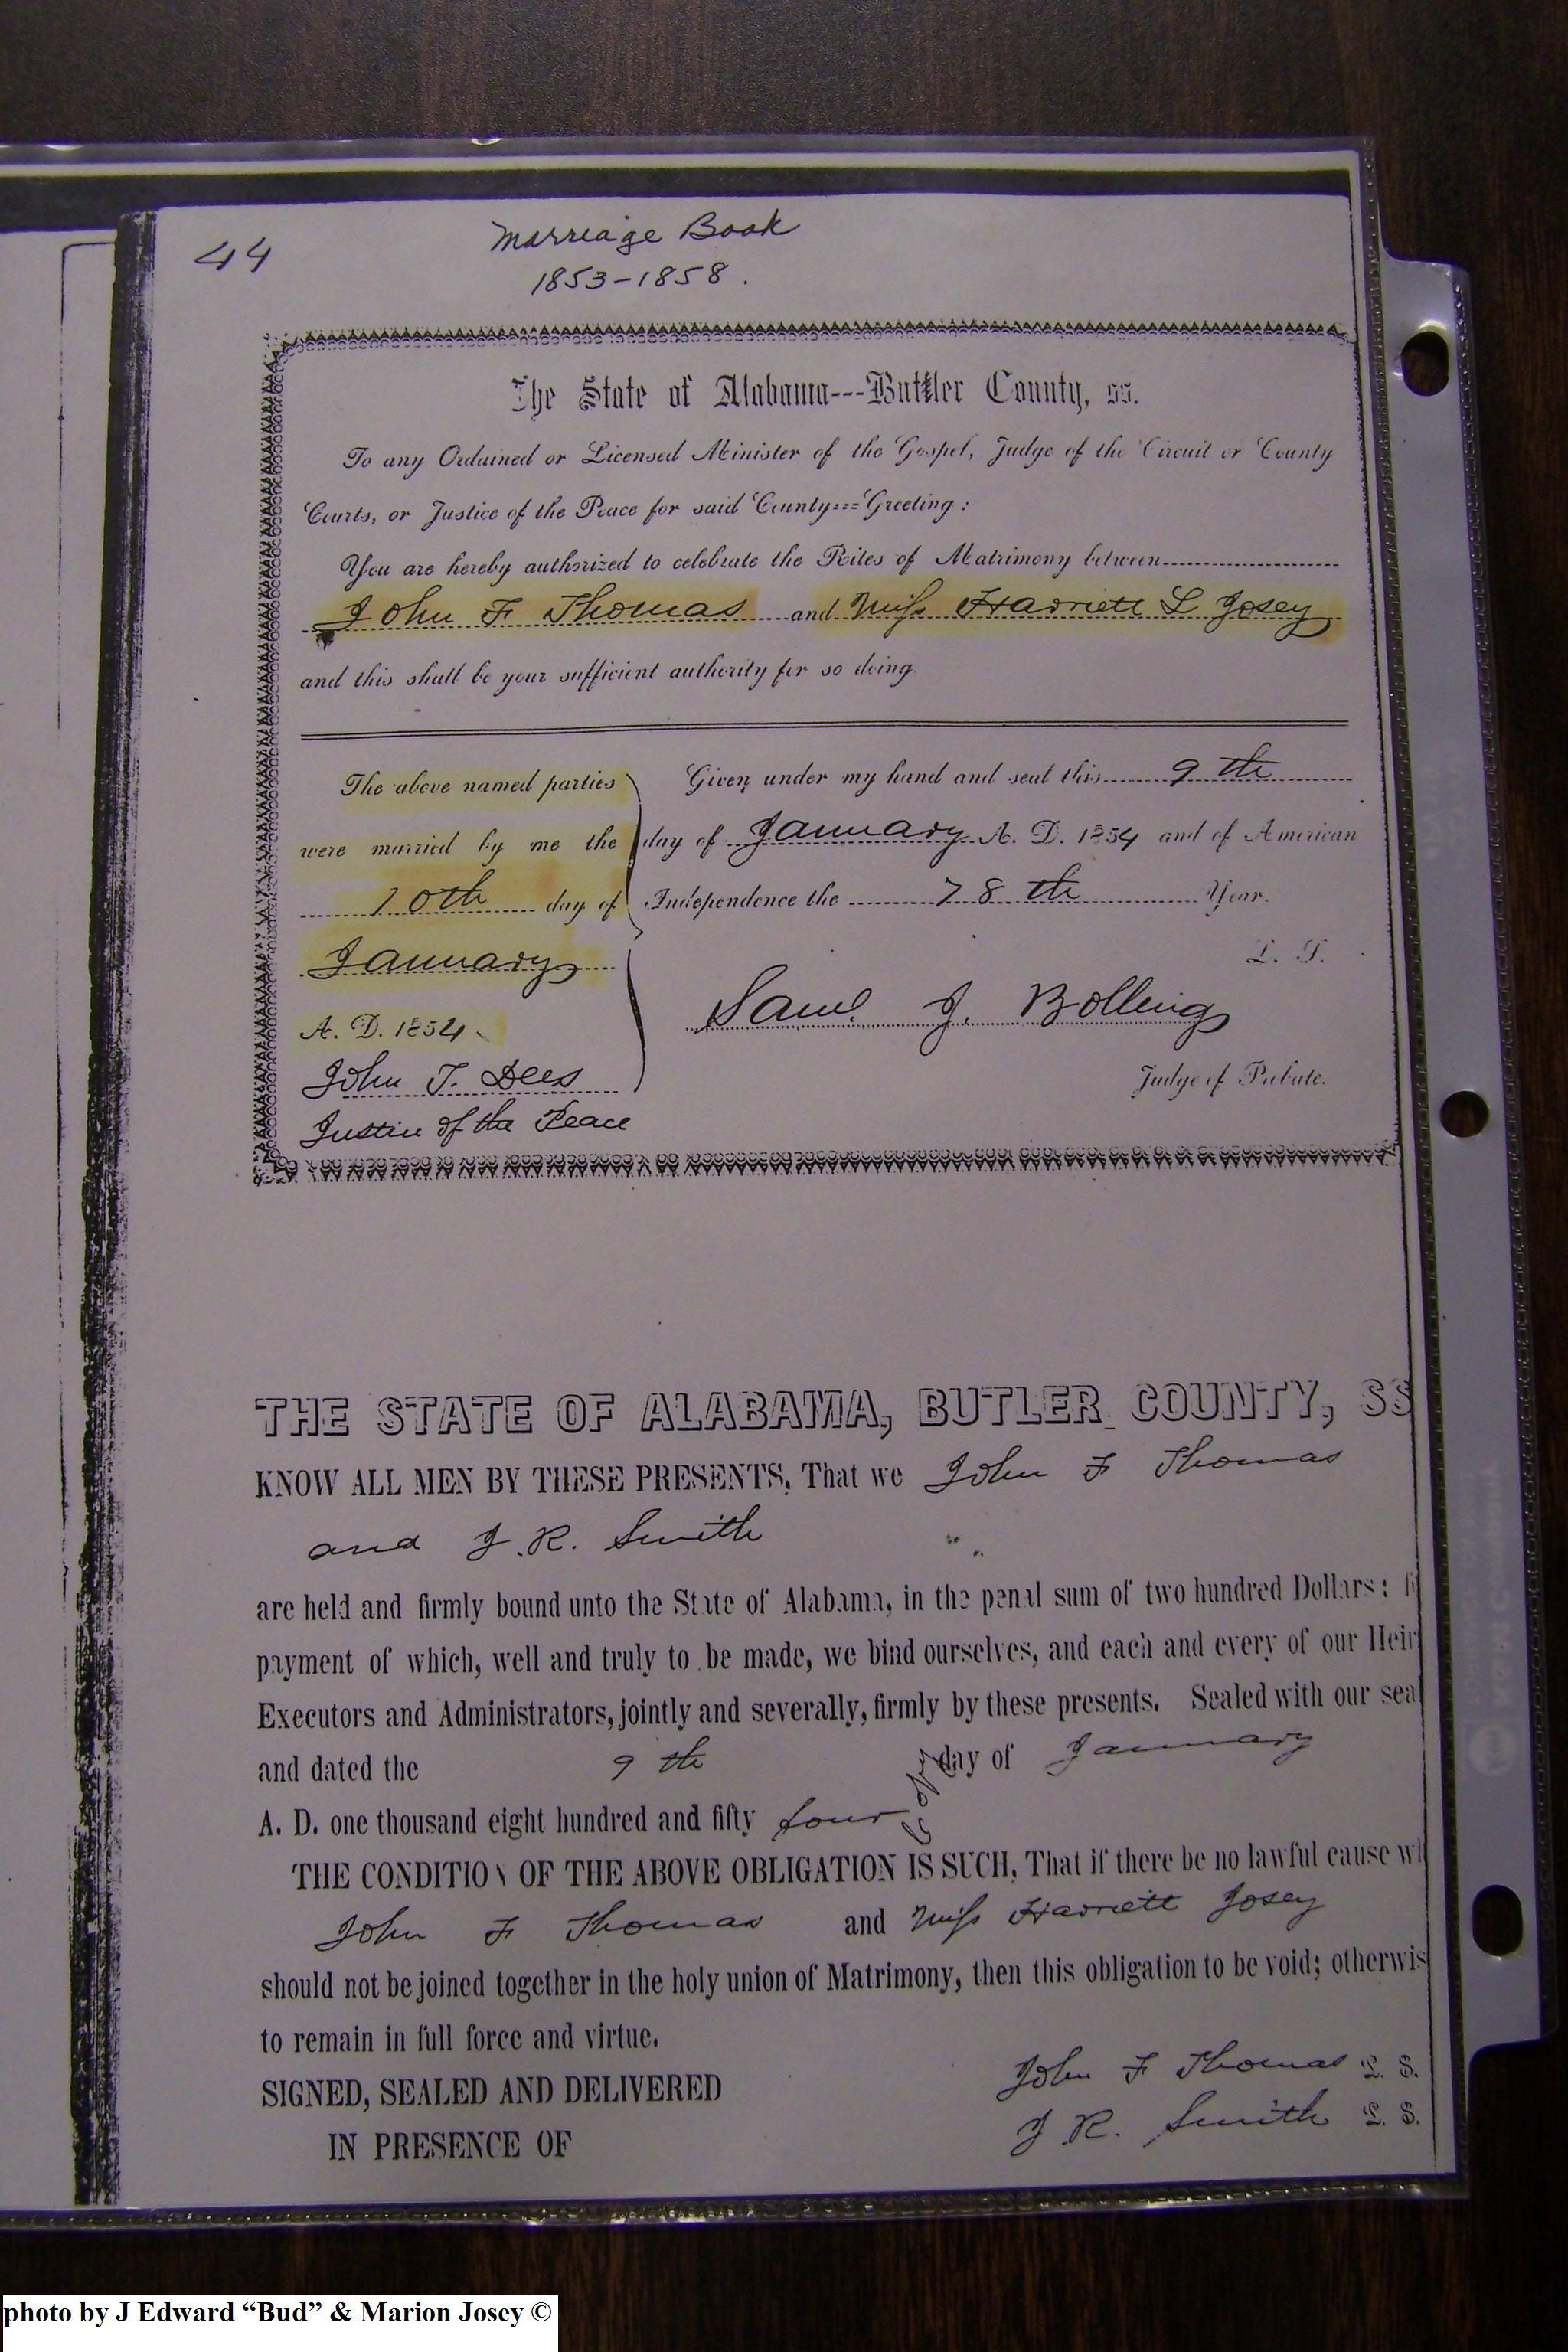 44
Marriage Book
1853-1858.
The State of Alabama---Buttler County, ss.
To any Ordained or Licensed Minister of the Gospel, Judge of the Circuit or County
Courts, or Justice of the Peace for said County===Greeting:
You are hereby authorized to celebrate the Rites of Matrimony between
John F Thomas and Miss Harriett L Josey
and this shall be your sufficient authority for so doing.
The above named parties
were married by me the
10th day of
January
A. D. 1854
John T. Dees
Justice of the Peace
Given under my hand and seal this 9th
day of January A. D. 1854 and of American
Independence the 78th Year.
L. S.
Saml. J. Bolling
Judge of Probate.
THE STATE OF ALABAMA, BUTLER COUNTY, SS
KNOW ALL MEN BY THESE PRESENTS, That we John F Thomas
and J. R. Smith
are held and firmly bound unto the State of Alabama, in the penal sum of two hundred Dollars:
payment of which, well and truly to be made, we bind ourselves, and each and every of our Heir
Executors and Administrators, jointly and severally, firmly by these presents. Sealed with our sea
and dated the 9th day of January
Copy
A. D. one thousand eight hundred and fifty four
THE CONDITION OF THE ABOVE OBLIGATION IS SUCH, That if there be no lawful cause wh
John F Thomas and Miss Harriett Josey
should not be joined together in the holy union of Matrimony, then this obligation to be void; otherwis
to remain in full force and virtue.
SIGNED, SEALED AND DELIVERED
IN PRESENCE OF
John F Thomas L. S.
J R. Smith L. S.
photo by J Edward “Bud” & Marion Josey ©